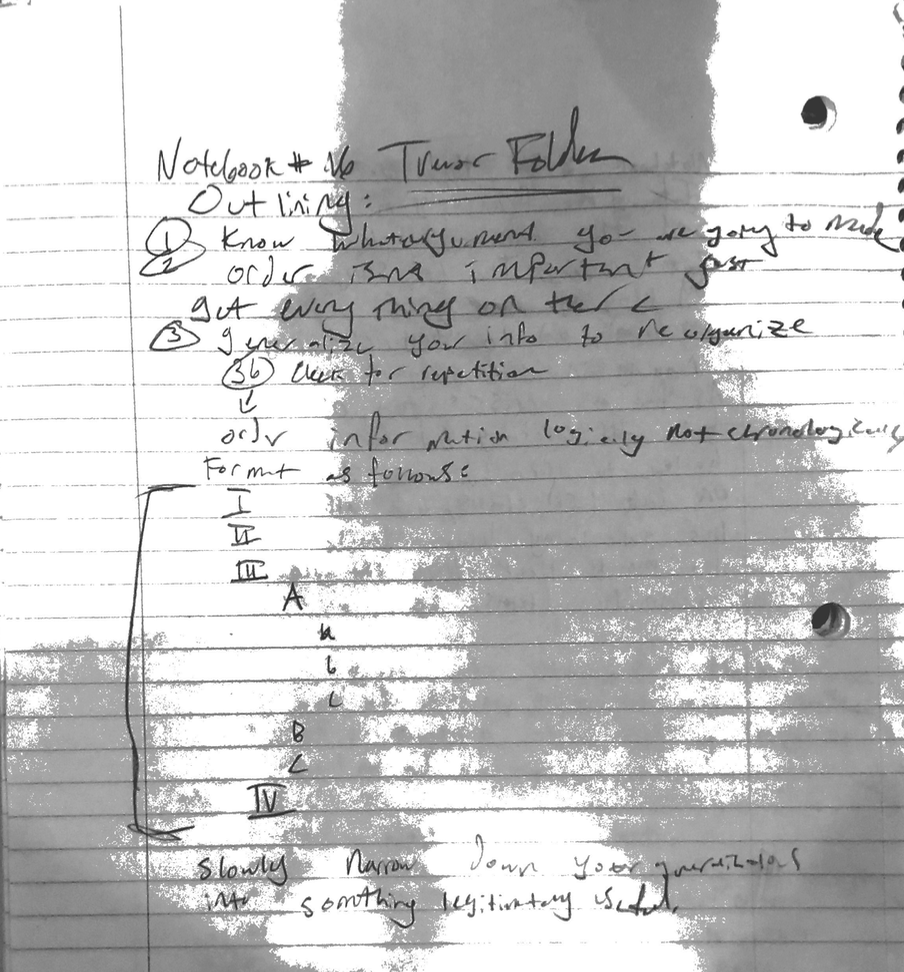 Notebook # 16 Trevor Folder
Outlining:
1 Know what argument you are going to make
2 order isnt important just
get every thing on there
3 generalize your info to reorganize
3b Check for repetition
↓
order information logically not chronologically
Format as follows:
I
II
III
A
a
b
c
B
C
IV
slowly Narrow down your
into something legitimatory useful.